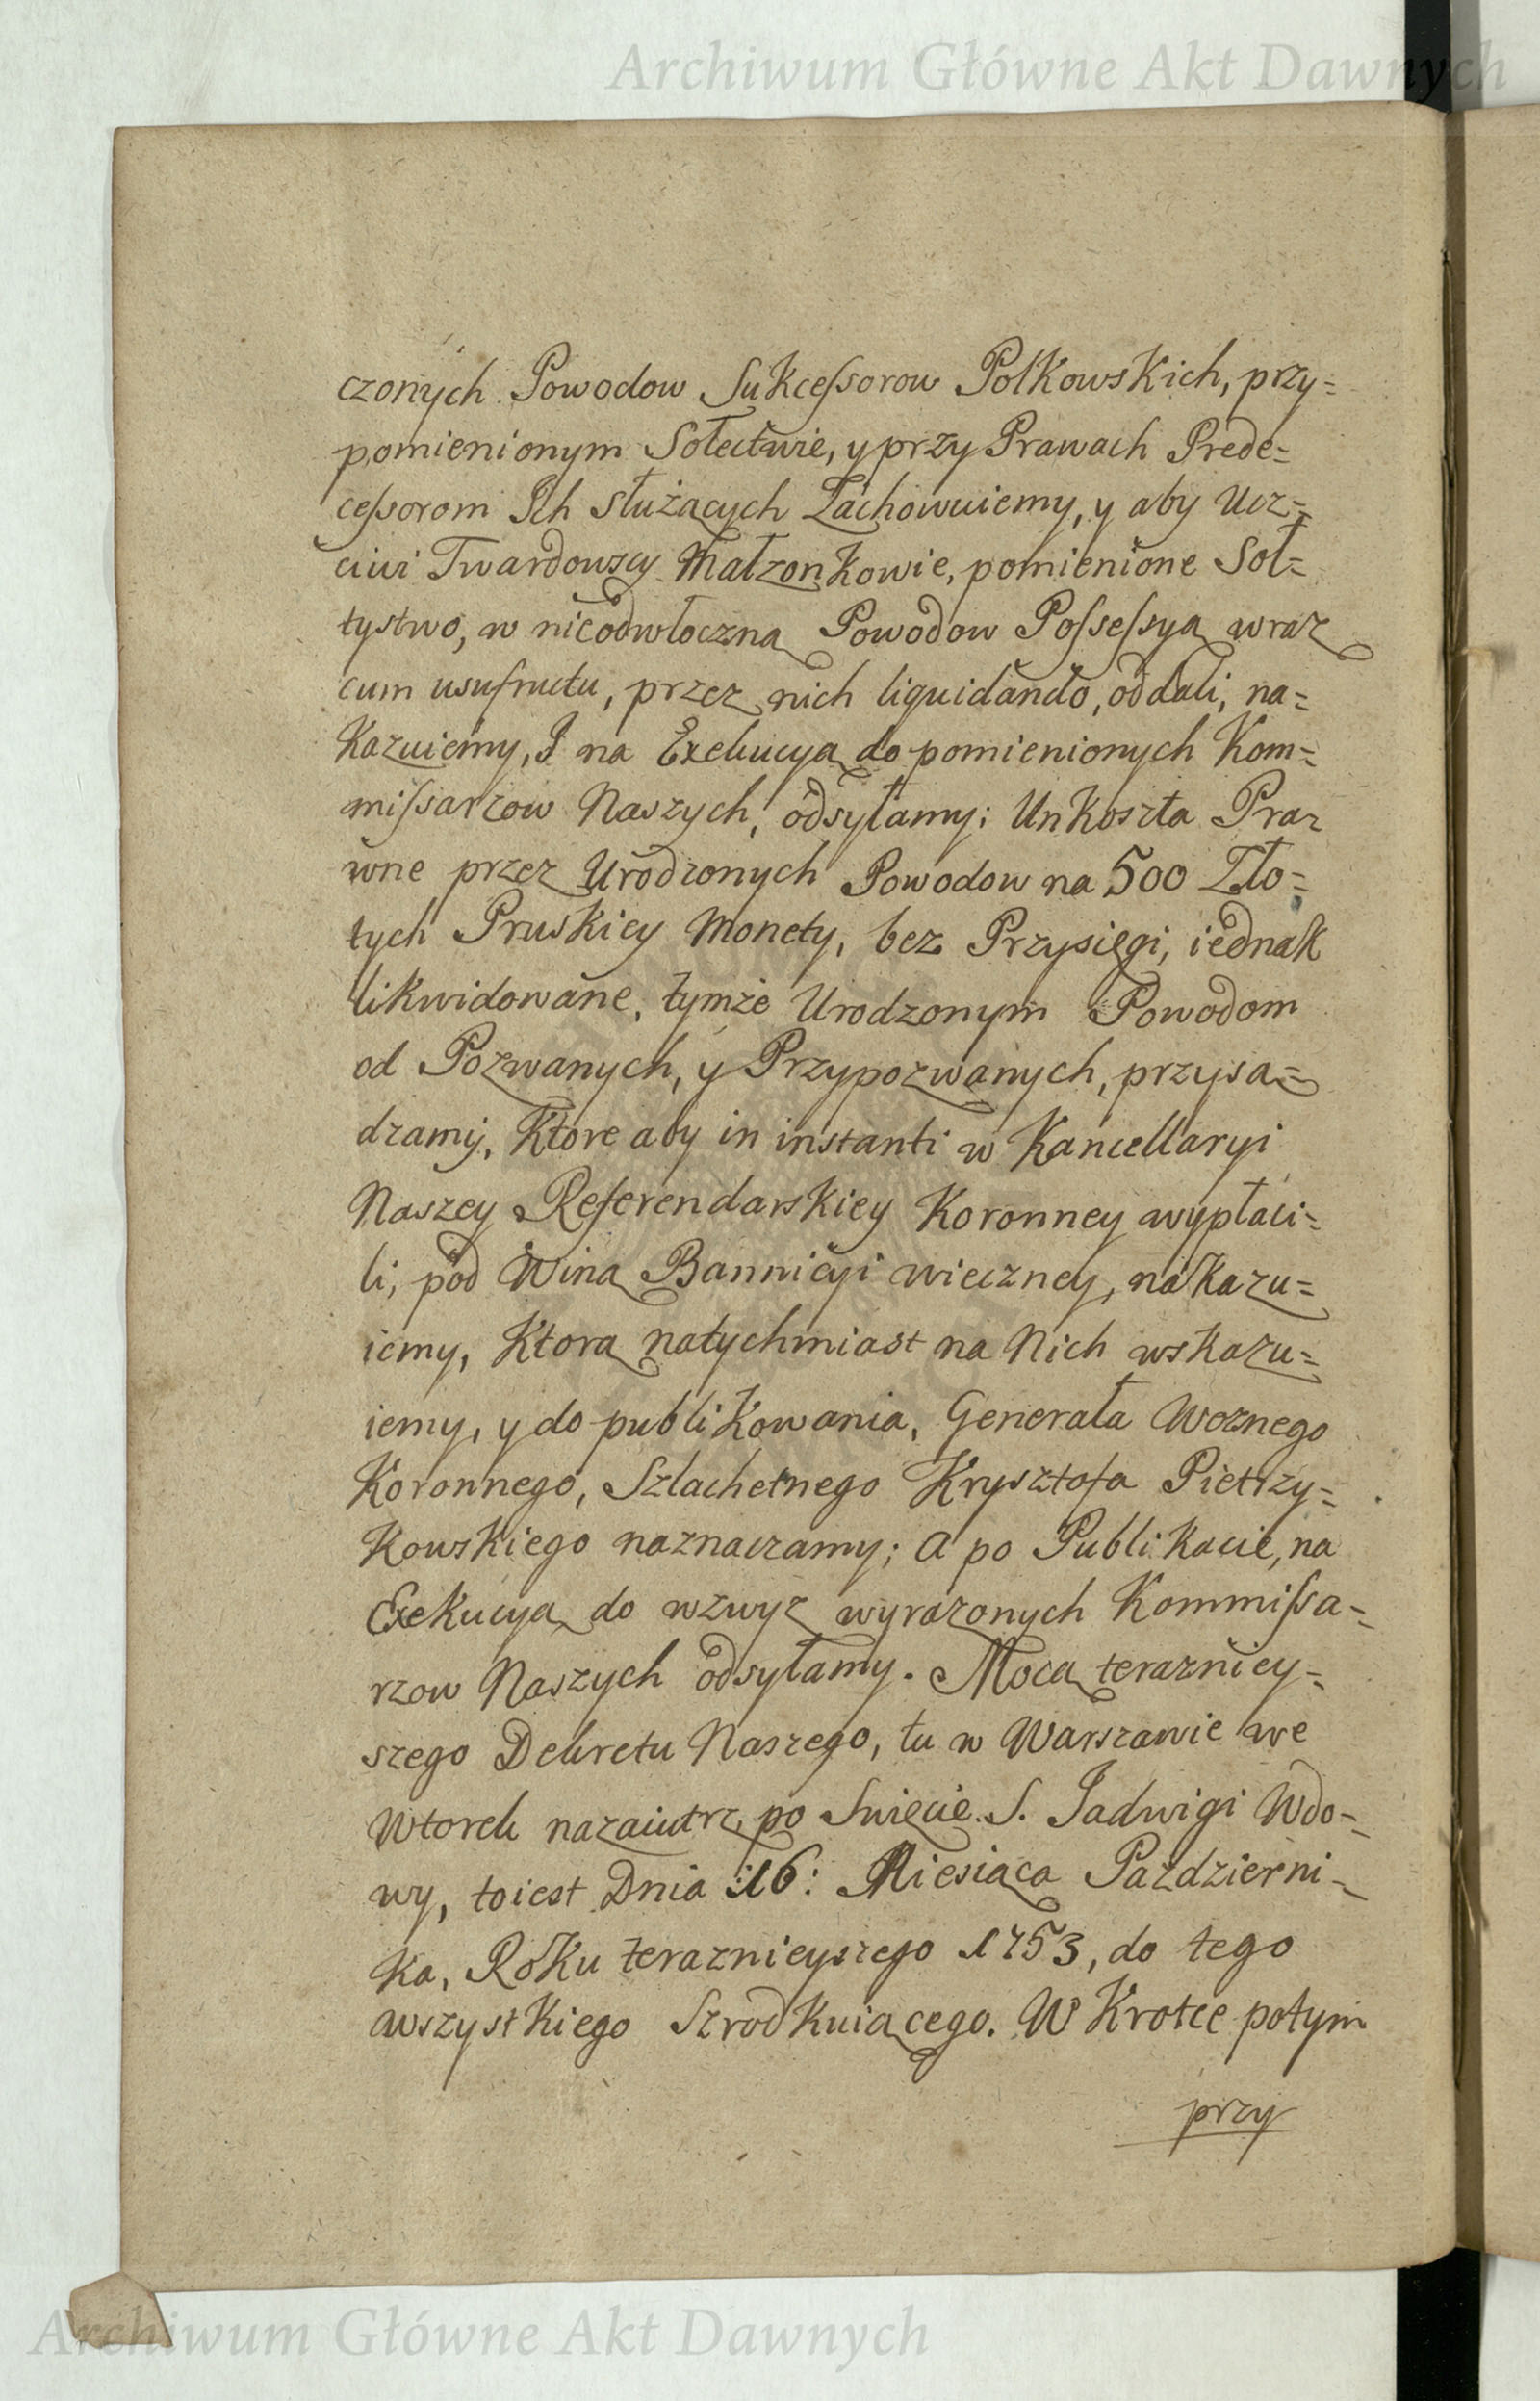 Archiwum Główne Akt Dawnych
czonych Powodow Sukceſsorow Polkowskich, przy=
pomienionym Sołectwie, y przy Prawach Prede=
ceſsorom Ich służących Zachowuiemy, y aby Ucz=
ciwi Twardowscy Małzonkowie, pomienione Soł=
tystwo, w nieodwłoczną Powodow Poſseſsyą wraz
cum usufructu, przez nich liquidando, oddali, na=
kazuiemy, I na Exekucyą do pomienionych Kom=
miſsarzow Naszych, odsyłamy; Unkoszta Pra=
wne przez Urodzonych Powodow na 500 Zło=
tych Pruskiey Monety, bez Przysięgi, iednak
likwidowane, tymże Urodzonym Powodom
od Pozwanych, y Przypozwanych, przysą=
dzamy, Ktore aby in instanti w Kancellaryi
Naszey Referendarskiey Koronney wypłaci=
li, pod Winą Bannicyi wieczney, nakazu=
iemy, Ktorą natychmiast na Nich wskazu=
iemy, y do publikowania, Generała Woznego
Koronnego, Szlachetnego Krysztofa Pietrzy=
kowskiego naznaczamy; a po Publikacie, na
Exekucyą do wzwyz wyrazonych Kommiſsa=
rzow Naszych odsyłamy. Mocą terazniey=
szego Dekretu Naszego, tu w Warszawie we
Wtorek nazaiutrz po Swięcie S. Jadwigi Wdo=
wy, toiest Dnia :16: Miesiąca Pazdzierni=
ka, Roku teraznieyszego 1753, do tego
wszystkiego Szrodkuiącego. W Krotce potym
przy
Archiwum Główne Akt Dawnych